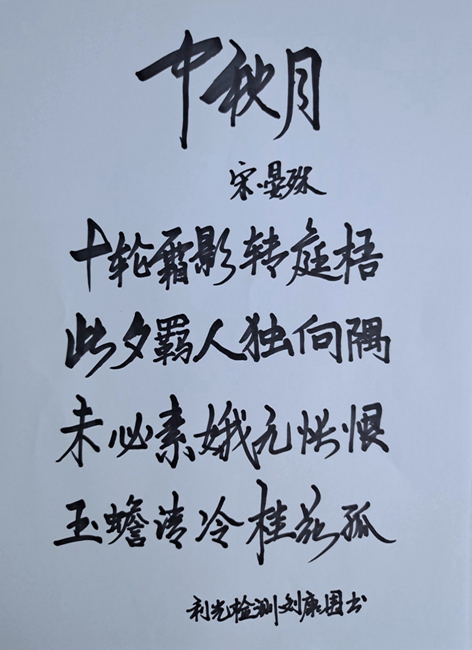 中秋月
宋·晏殊
十轮霜影转庭梧
此夕羁人独向隅
未必素娥无怅恨
玉蟾清冷桂花孤
利光检测刘康国书